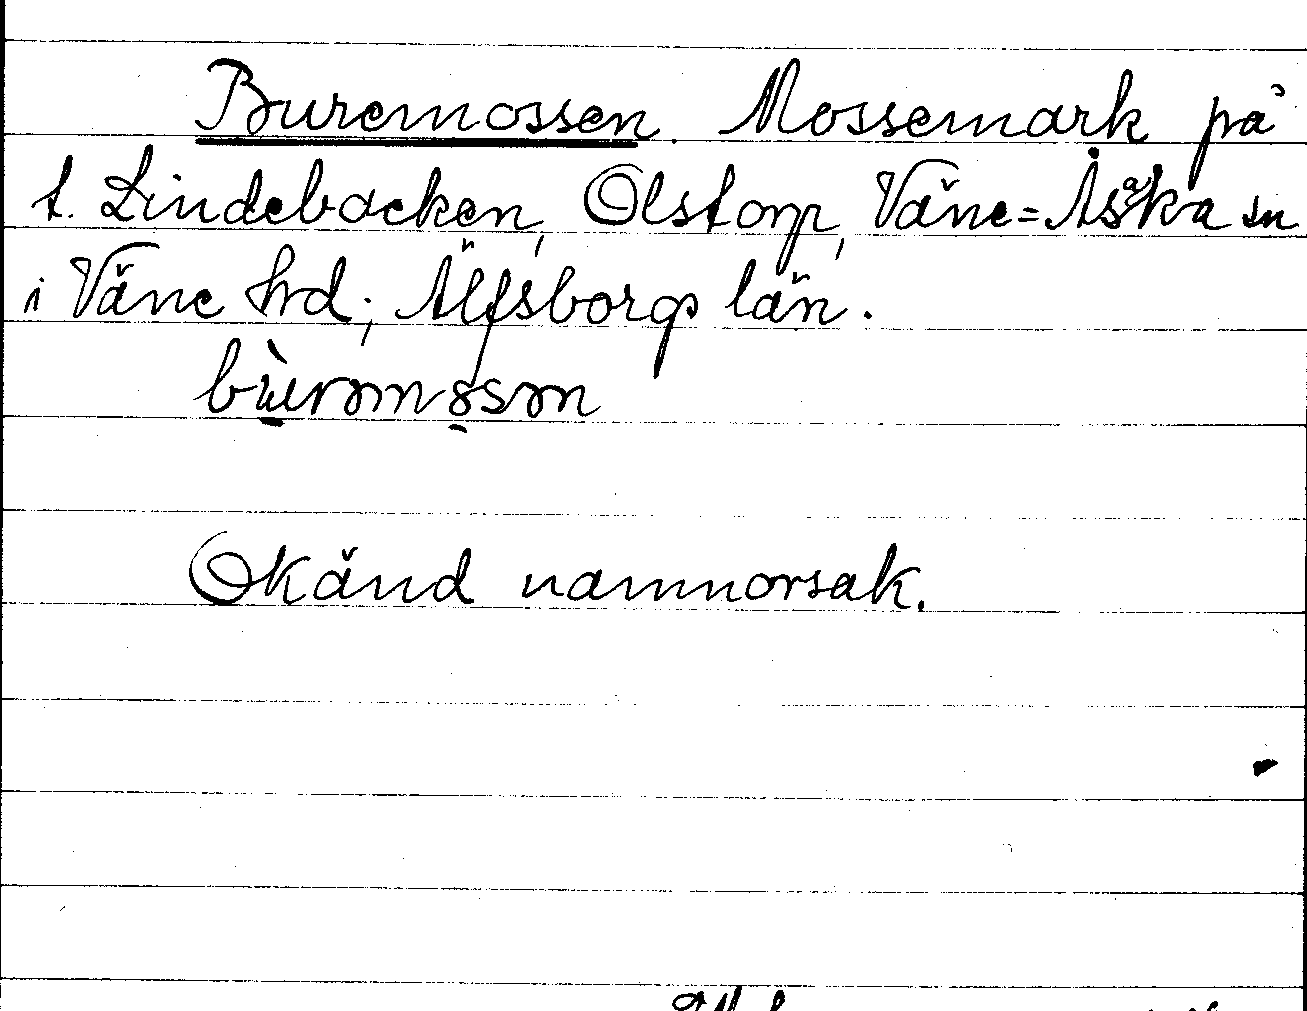 Buremossen. Mossemark på
t. Lindebacken, Olstorp, Väne=Åsaka sn
i Väne hrd; Älfsborgs län.
bùrəmɔsən
Okänd namnorsak.